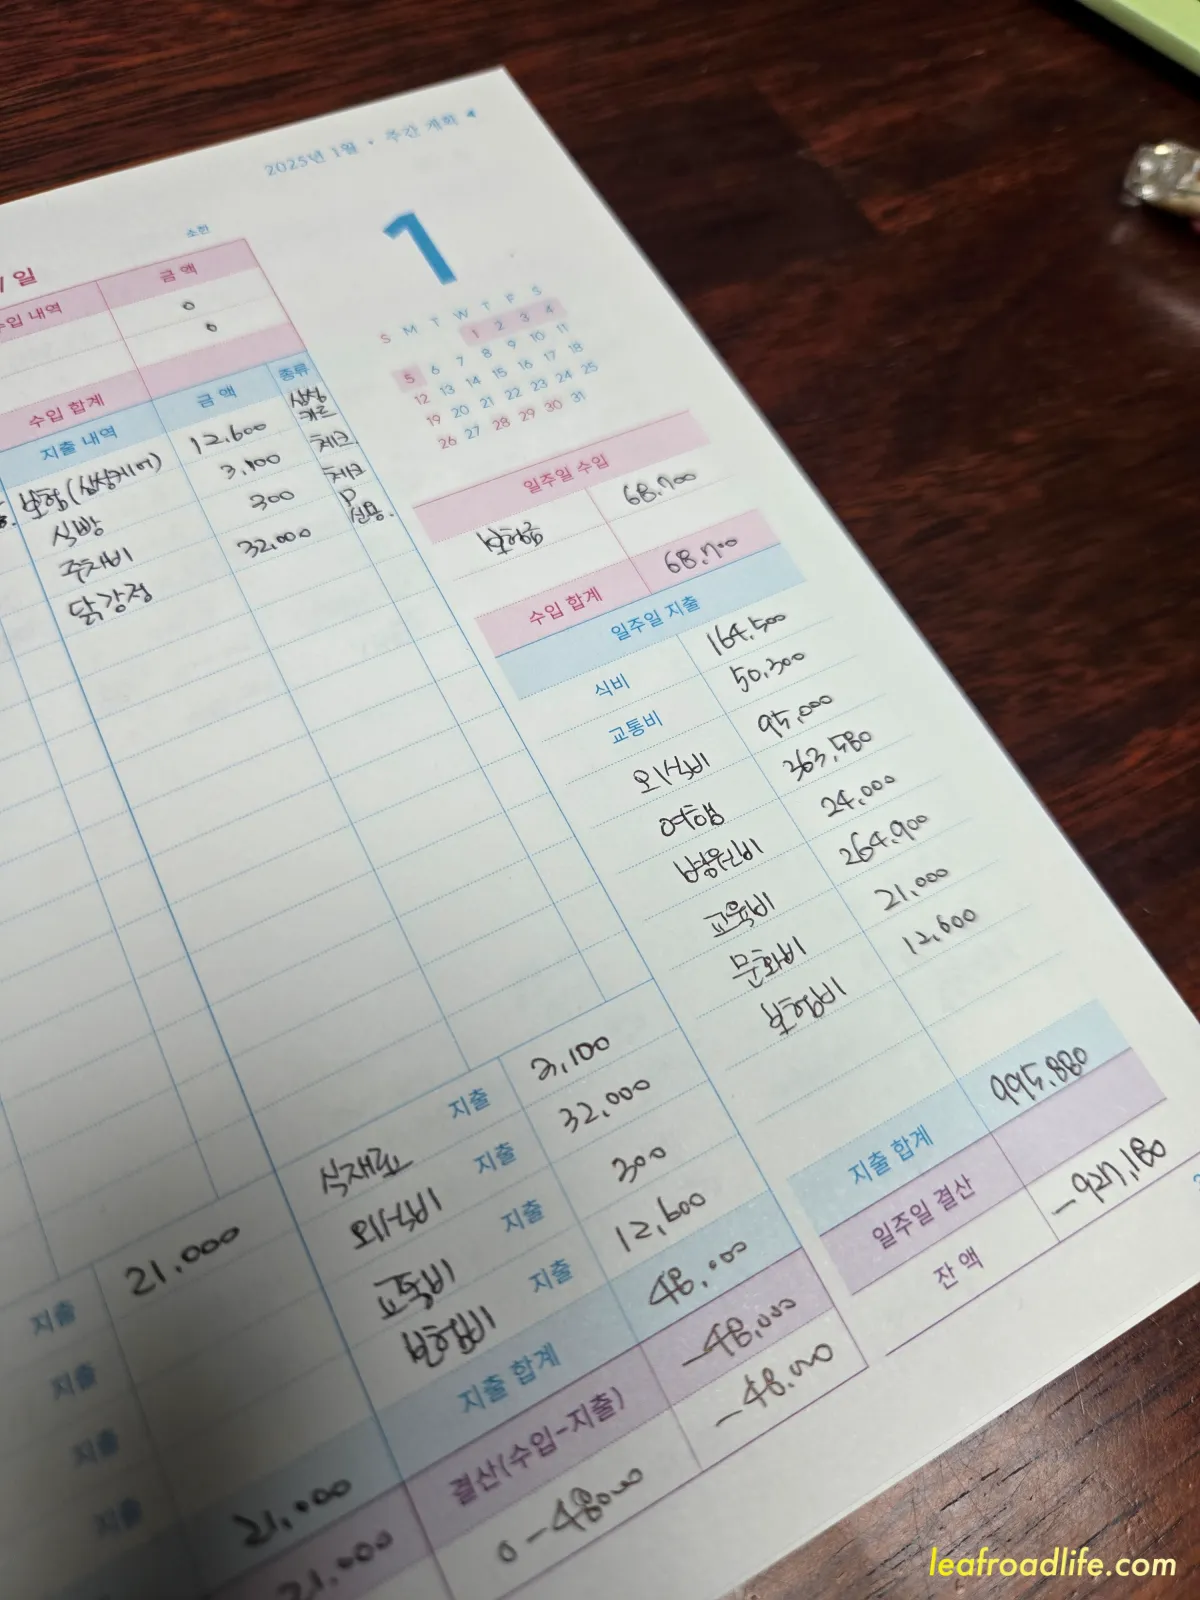 2025년 1월 • 주간 계획
소한
1
/ 일
수입 내역 금액
0
0
수입 합계
지출 내역 금액 종류
보험(삼성케어) 12,600 삼성카드
식빵 3,100 체크
주차비 300 체크
닭강정 32,000 신용.
S M T W T F S
1 2 3 4
5 6 7 8 9 10 11
12 13 14 15 16 17 18
19 20 21 22 23 24 25
26 27 28 29 30 31
일주일 수입
보험금 68,700
수입 합계 68,700
일주일 지출
식비 164,500
교통비 50,300
외식비 95,000
여행 363,580
병원비 24,000
교육비 264,900
문화비 21,000
보험비 12,600
지출 합계 995,880
일주일 결산 -927,180
잔액
식재료 지출 3,100
외식비 지출 32,000
교통비 지출 300
보험비 지출 12,600
지출 합계 48,000
결산(수입-지출) -48,000
0-48000 -48,000
지출 21,000
지출
지출
지출
21,000
21,000
leafroadlife.com